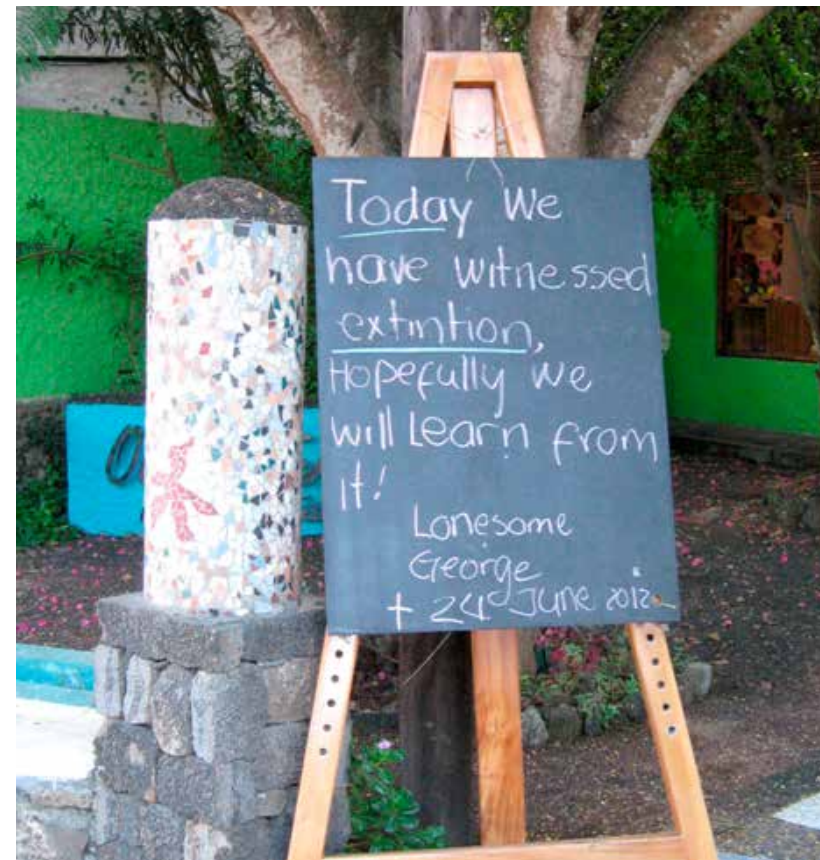 Today We
have witnessed
extintion,
Hopefully we
will Learn from
it!
Lonesome
George
+ 24 June 2012